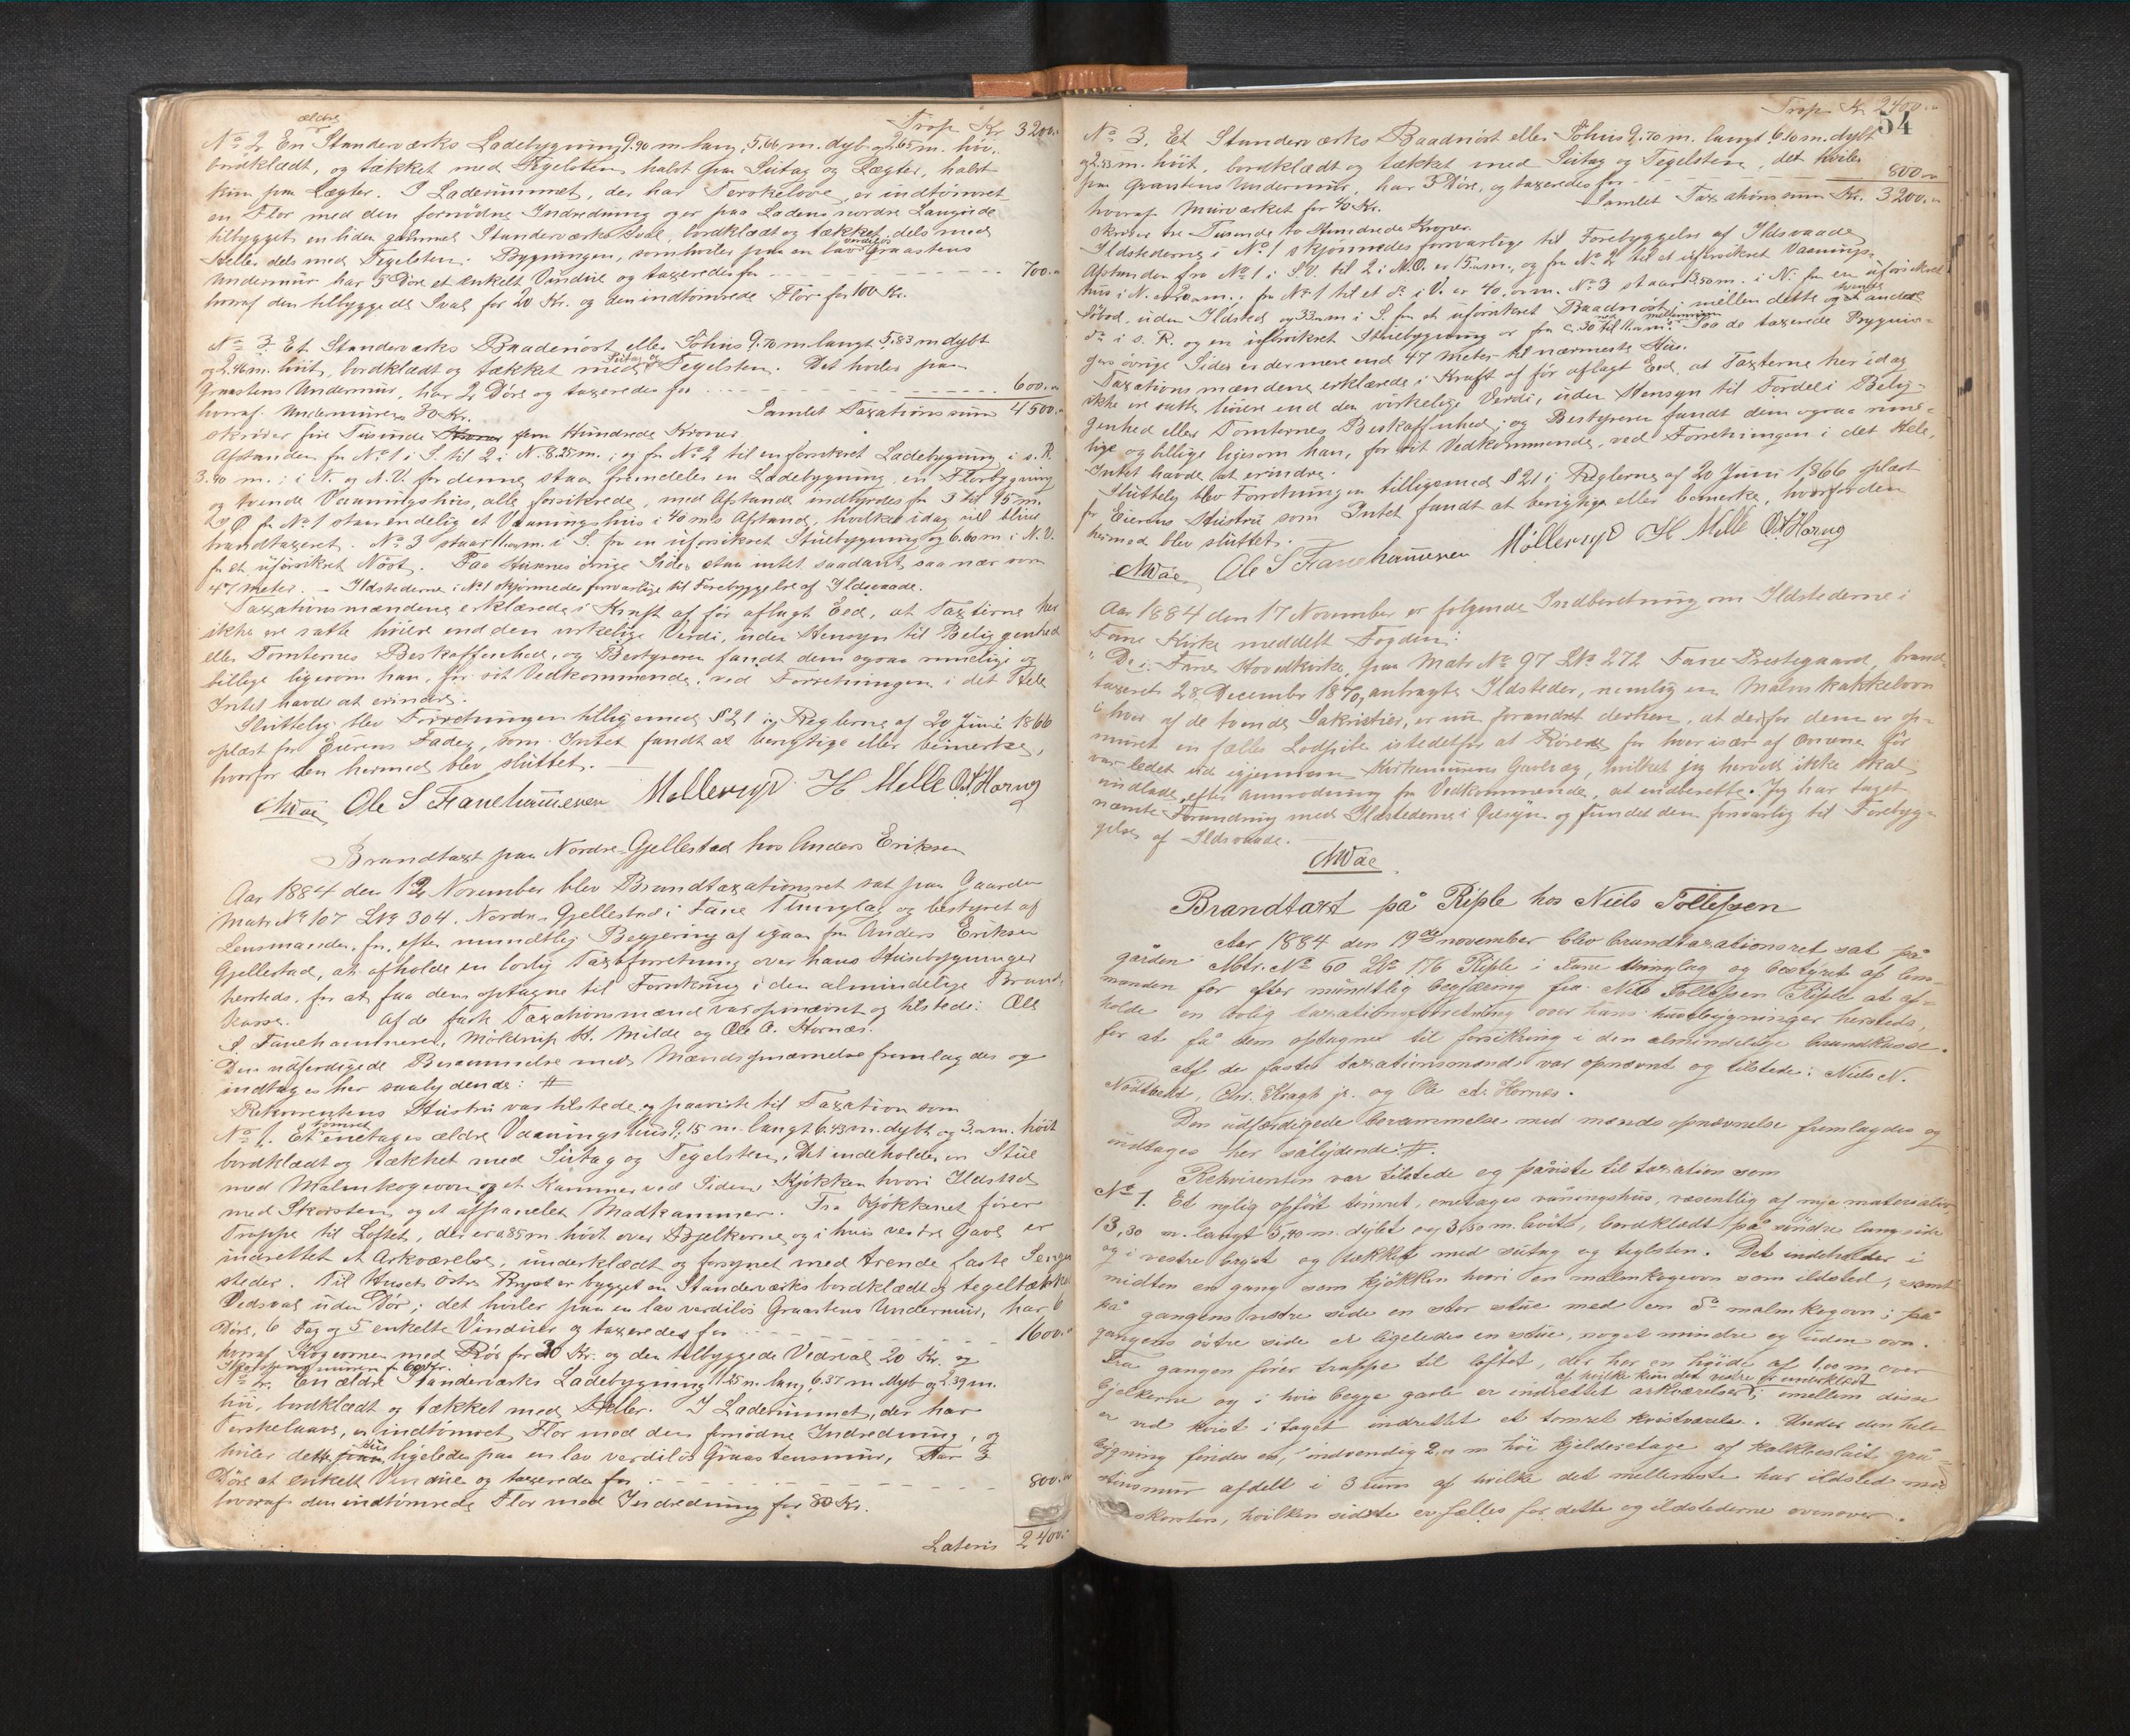 Trsp. Kr. 3200.-
ældre
No 2. En Standerværks Ladebygning 9.90 m. lang, 5.66 m. dyb og 2.65 m. høi,
bordklædt, og tækket med Tegelsten, halvt paa Sutag og Lægter, halvt
kun paa Lægter. I Laderummet, der har Terskelove, er indtømret
en Flor med den fornødne Indredning og er paa Ladens nordre Langside
tilbygget en liden gammel Standerværks Sval, bordklædt og tækket dels med
Heller dels med Tegelsten. Bygningen, som hviler paa en lav verdiløs Graastens
Undermur har 3 Døre et enkelt Vindue og taxeredes for 700.-
hvoraf den tilbyggede Sval for 20 Kr. og den indtømrede Flor for 100 Kr.
No 3. Et Standerværks Baadenøst eller Søhus 9.70 m langt 5.83 m dybt
og 2.46 m. høit, bordklædt og tækket med Sutag og Tegelsten. Det hviler paa
Graastens Undermur, har 2 Døre og taxeredes for 600.-
hvoraf Undermuren 30 Kr. Samlet Taxationssum 4500.-
skriver fire Tusinde Kroner fem Hundrede Kroner
Afstanden fra No 1 i S. til 2 i N. 8.25 m.; og fra No 2 til en forsikret Ladebygning i s. R.
3.90 m.; i N. og N.V. for denne staa fremdeles en Ladebygning, en Florbygning
og tvende Vaaningshus, alle forsikrede, med Afstande indbyrdes fra 3 til 95 m.
I Ø. fra No 1 staar endelig et Vaaningshus i 40 m's Afstand, hvilket idag vil blive
brandtaxeret. No 3 staar 11.00 m. i S. fra en uforsikret Stuebygning og 6.60 m i N.V.
fra et uforsikret Nøst. Paa Husenes øvrige Sider staa intet saadant saa nær som
47 meter. - Ildstederne i No 1 skjønnedes forsvarlige til Forebyggelse af Ildsvaade.
Taxationsmændene erklærede i Kraft af før aflagt Eed, at Taxterne her
ikke ere satte høiere end den virkelige Verdi, uden Hensyn til Beliggenhed
eller Tomternes Beskaffenhed, og Bestyreren fandt dem ogsaa rimelige og
billige ligesom han, for sit Vedkommende, ved Forretningen i det Hele
Intet havde at erindre.
Sluttelig blev Forretningen tilligemed § 21 i Reglerne af 20 Juni 1866
oplæst for Eierens Fader, som Intet fandt at berigtige eller bemerke,
hvorfor den hermed blev sluttet. -
Ole S Fanehammeren Møllerup H Melle O. A. Hornes
Brandtaxt paa Nordre Gjellestad hos Anders Eriksen
Aar 1884 den 12 November blev Brandtaxationsret sat paa Gaarden
Matr No 107 LNo 304. Nordre Gjellestad i Fane Thinglag og bestyret af
Lensmanden, for, efter mundtlig Begjering af igaar fra Anders Eriksen
Gjellestad, at afholde en lovlig Taxtforretning over hans Husebygninger
hersteds, for at faa dem optagne til Forsikring i den almindelige Brand-
kasse. Af de faste Taxationsmænd var opnævnt og tilstede: Ole
S Fanehammeren, Møldrup, H. Milde og Ole A. Hornæs.
Den udferdigede Berammelse med Mændsopnævnelse fremlagdes og
indtages her saalydende: #
Rekvirentens Hustru var tilstede og paaviste til Taxation som
No 1. Et tømret enetages ældre Vaaningshus 9.15 m. langt 6.43 m. dybt og 3.00 m. høit
bordklædt og tækket med Sutag og Tegelsten. Det indeholder en Stue
med Malmkogeovn og et Kammer ved Siden, Kjøkken hvori Ildsted
med Skorsten og et afpanelet Madkammer. Fra Kjøkkenet fører
Trappe til Loftet, der er 0.85 m. høit over Bjelkerne og i hvis vestre Gavl er
indrettet et Arkværelse, underklædt og forsynet med trende faste Senge-
steder. Til Husets østre Bryst er bygget en Standerværks bordklædt og tegeltækket
Vedsval uden Dør; det hviler paa en lav verdiløs Graastens Undermur, har 6
Døre, 6 Fag og 5 enkelte Vinduer og taxeredes for 1600.-
hvoraf Kogeovnen med Rør for 30 Kr. og den tilbyggede Vedsval 20 Kr. og
Skorstensmuren for 60 Kr.
No 2. En ældre Standerværks Ladebygning 11.25 m. lang, 6.37 m dyb og 2.39 m.
høi, bordklædt og tækket med Heller. I Laderummet, der har
Terskelaave, er indtømret Flor med den fornødne Indredning, og
hviler dette Hus ligeledes paa en lav verdiløs Graastensmur, Har 3
Døre et enkelt Vindue og taxeredes for 800.-
hvoraf den indtømrede Flor med Indredning for 80 Kr.
Lateris 2400.-
Trsp. Kr. 2400.-
54
No 3. Et Standerværks Baadnøst eller Søhus 9.70 m. langt 6.10 m. dybt
og 2.83 m. høit, bordklædt og tækket med Sutag og Tegelsten, det hviler
paa Graastens Undermur, har 3 Døre, og taxeredes for 800.-
hvoraf Murværket for 40 Kr. Samlet Taxationssum Kr. 3200.-
skriver tre Tusinde to Hundrede Kroner.
Ildstederne i No 1 skjønnedes forsvarlige til Forebyggelse af Ildsvaade.
Afstanden fra No 1 i S.V. til 2 i N.Ø. er 15 m., og fra No 2 til et uforsikret Vaanings-
hus i N. er 20 m.; fra No 1 til et do i V. er 40.00 m. No 3 staar 13.50 m. i N. fra en uforsikret
Sjøbod, uden Ildsted og 33.00 m i S. fra et uforsikret Baadnøst; mellem dette og tvende andre
do i s. R. og en uforsikret Stuebygning er fra c. 30 til 11.00 m. Paa de taxerede Bygnin-
gers øvrige Sider er der mere end 47 Meter til nærmeste Hus.
Taxationsmændene erklærede i Kraft af før aflagt Eed, at Taxterne her idag
ikke ere satte høiere end den virkelige Verdi, uden Hensyn til Fordel i Belig-
genhed eller Tomternes Beskaffenhed; og Bestyreren fandt dem ogsaa rime-
lige og billige ligesom han, for sit Vedkommende, ved Forretningen i det Hele,
Intet havde at erindre.
Sluttelig blev Forretningen tilligemed § 21 i Reglerne af 20 Juni 1866 oplæst
for Eierens Hustru som Intet fandt at berigtige eller bemerke, hvorfor den
hermed blev sluttet.
Ole S Fanehammeren Møllerup H Melle O. A. Hornes
Aar 1884 den 17 November er følgende Indberetning om Ildstederne i
Fane Kirke meddelt Fogden:
"De i Fane Hovedkirke, paa Matr No 97 LNo 272 Fane Prestegaard, brand-
taxeret 28 December 1870, anbragte Ildsteder, nemlig en Malmkakkelovn
i hver af de tvende Sakristier, er nu forandret derhen, at der for dem er op-
muret en fælles Lodpibe istedetfor at Rørene for hver især af Ovnene før
var ledet ud igjennem Kirkemurens Gavlvæg, hvilket jeg herved ikke skal
undlade, efter Anmodning fra Vedkommende, at indberette. Jeg har taget
nævnte Forandring med Ildstederne i Øiesyn og fundet den forsvarlig til Forebyg-
gelse af Ildsvaade.
Brandtaxt på Riple hos Niels Tollefsen
Aar 1884 den 19de november blev brandtaxationsret sat på
gården Mtr. No 60 LNo 176 Riple i Fane thinglag og bestyret af lens-
manden for efter mundtlig begjæring fra Niels Tollefsen Riple at af-
holde en lovlig taxationsforretning over hans husebygninger hersteds,
for at få dem optagne til forsikring i den almindelige brandkasse.
Af de faste taxationsmænd var opnævnt og tilstede: Niels N.
Nødtvedt, Chr. Kragh jr. og Ole A. Hornes.
Den udfærdigede berammelse med mænds opnævnelse fremlagdes og
indtages her sålydende: #.
Rekvirenten var tilstede og påviste til taxation som
No 1. Et nylig opført tømret, enetages våningshus, væsentlig af nye materialier,
13,30 m. langt 5,40 m. dybt og 3,50 m. høit, bordklædt på søndre langside
og i vestre bryst og tækket med sutag og teglsten. Det indeholder i
midten en gang som kjøkken hvori en malmkogeovn som ildsted, samt
på gangens vestre side en stor stue med en do malmkogovn; på
gangens østre side er ligeledes en stue, noget mindre og uden ovn.
Fra gangen fører trappe til loftet, der har en høide af 1,00 m over
af hvilke kun det vestre er underklædt
bjelkerne og i hvis begge gavle er indrettet arkværelser; imellem disse
er ved kvist i taget indrettet et tømret kvistværelse. Under den hele
bygning findes en, indvendig 2,00 m høi kjelderetage af kalkbeslået grå-
stensmur afdelt i 3 rum af hvilke det mellemste har ildsted med
skorsten, hvilken sidste er fælles for dette og ildstederne ovenover.